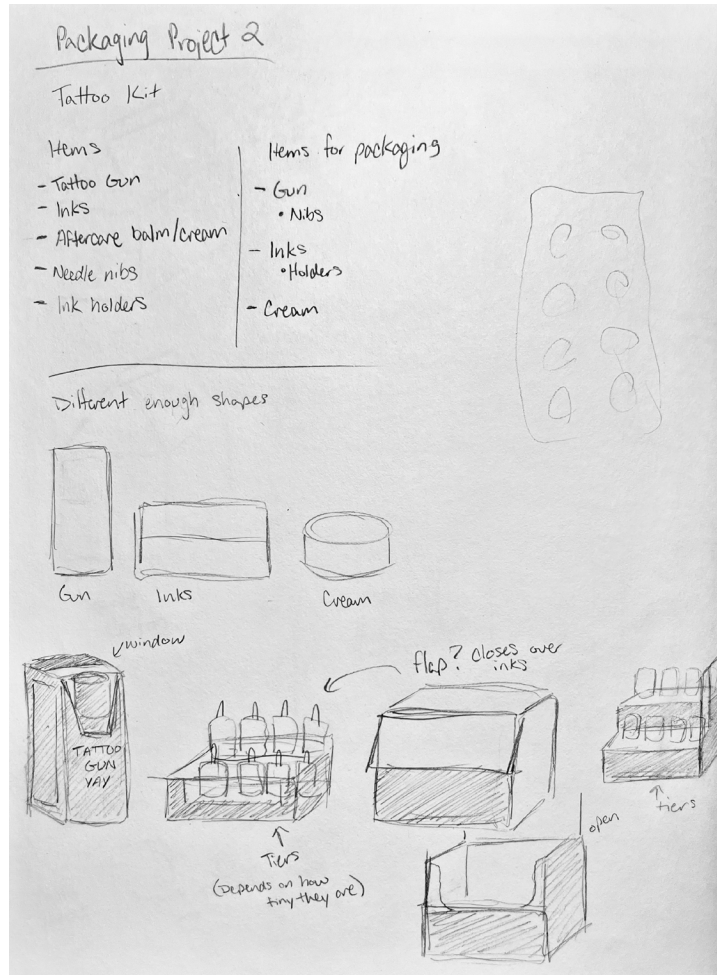 Packaging Project 2
Tattoo Kit
Items
- Tattoo Gun
- Inks
- Aftercare balm/cream
- Needle nibs
- Ink holders
Items for packaging
- Gun
• Nibs
- Inks
• Holders
- Cream
Different enough shapes
Gun
Inks
Cream
window
TATTOO
GUN
YAY
flap? closes over
inks
Tiers
(Depends on how
tiny they are)
open
tiers